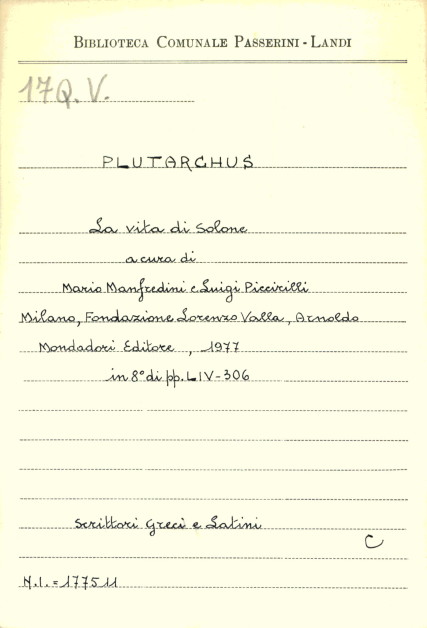 BIBLIOTECA COMUNALE PASSERINI - LANDI
17Q.V.
PLUTARCHUS
La vita di Solone
a cura di
Mario Manfredini e Luigi Piccirilli
Milano, Fondazione Lorenzo Valla, Arnoldo
Mondadori Editore, 1977
in 8° di pp. LIV-306
Scrittori Greci e Latini
C
N.I. = 177511